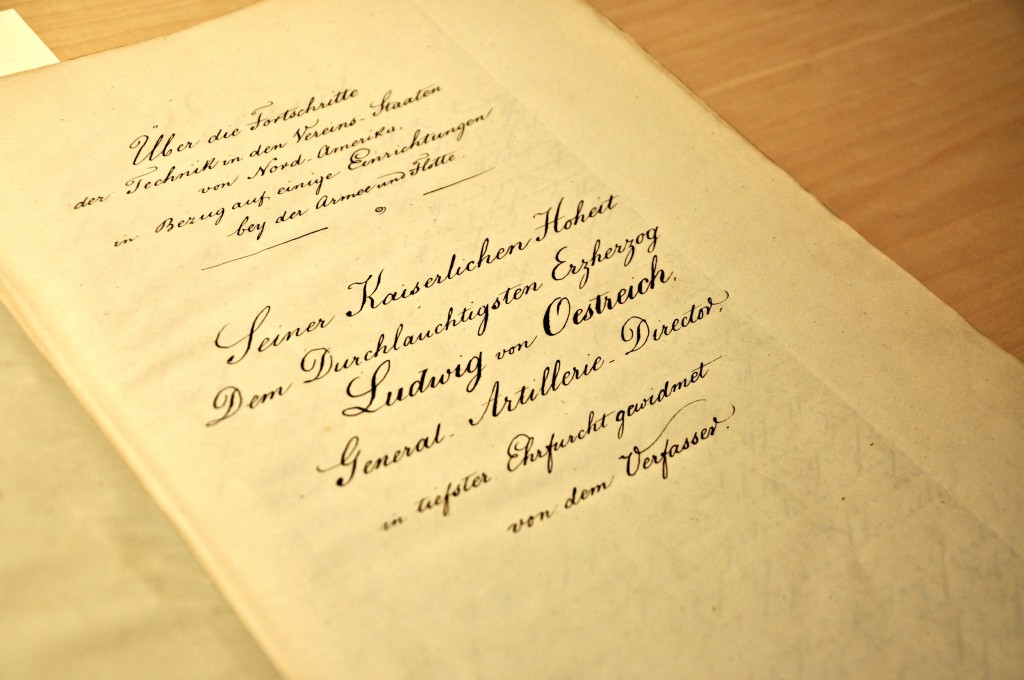 Über die Fortschritte
der Technik in den Vereins-Staaten
von Nord-Amerika.
in Bezug auf einige Einrichtungen
bey der Armee und Flotte.
Seiner Kaiserlichen Hoheit
Dem Durchlauchtigsten Erzherzog
Ludwig von Oestreich,
General-Artillerie-Director,
in tiefster Ehrfurcht gewidmet
von dem Verfasser.